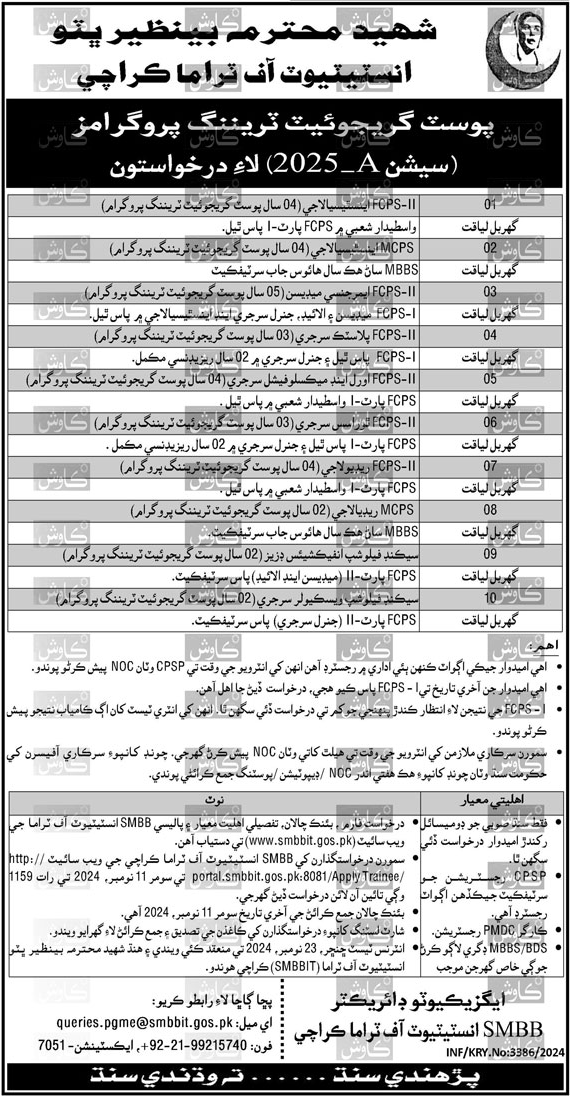 شهيد محترمه بينظير ڀٽو
انسٽيٽيوٽ آف ٽراما ڪراچي
پوسٽ گريجوئيٽ ٽريننگ پروگرامز
(سيشن 2025_A) لاءِ درخواستون
01 FCPS-II اينستيسيالاجي (04 سال پوسٽ گريجوئيٽ ٽريننگ پروگرام)
گهربل لياقت واسطيدار شعبي ۾ FCPS پارٽ-I پاس ٿيل.
02 MCPS اينستيسيالاجي (04 سال پوسٽ گريجوئيٽ ٽريننگ پروگرام)
گهربل لياقت MBBS ساڻ هڪ سال هائوس جاب سرٽيفڪيٽ
03 FCPS-II ايمرجنسي ميڊيسن (05 سال پوسٽ گريجوئيٽ ٽريننگ پروگرام)
گهربل لياقت FCPS-I ميڊيسن ۽ الائيڊ، جنرل سرجري اينڊ اينستيسيالاجي ۾ پاس ٿيل.
04 FCPS-II پلاسٽڪ سرجري (03 سال پوسٽ گريجوئيٽ ٽريننگ پروگرام)
گهربل لياقت FCPS-I پاس ٿيل ۽ جنرل سرجري ۾ 02 سال ريزيڊنسي مڪمل.
05 FCPS-II اورل اينڊ ميڪسلوفيشل سرجري (04 سال پوسٽ گريجوئيٽ ٽريننگ پروگرام)
گهربل لياقت FCPS پارٽ-I واسطيدار شعبي ۾ پاس ٿيل.
06 FCPS-II ٿوراسس سرجري (03 سال پوسٽ گريجوئيٽ ٽريننگ پروگرام)
گهربل لياقت FCPS پارٽ-I پاس ٿيل ۽ جنرل سرجري ۾ 02 سال ريزيڊنسي مڪمل.
07 FCPS-II ريڊيولاجي (04 سال پوسٽ گريجوئيٽ ٽريننگ پروگرام)
گهربل لياقت FCPS پارٽ-I واسطيدار شعبي ۾ پاس ٿيل.
08 MCPS ريڊيالاجي (02 سال پوسٽ گريجوئيٽ ٽريننگ پروگرام)
گهربل لياقت MBBS ساڻ هڪ سال هائوس جاب سرٽيفڪيٽ.
09 سيڪنڊ فيلوشپ انفيڪشيئس ڊزيز (02 سال پوسٽ گريجوئيٽ ٽريننگ پروگرام)
گهربل لياقت FCPS پارٽ-II (ميڊيسن اينڊ الائيڊ) پاس سرٽيفڪيٽ.
10 سيڪنڊ فيلوشپ ويسڪيولر سرجري (02 سال پوسٽ گريجوئيٽ ٽريننگ پروگرام)
گهربل لياقت FCPS پارٽ-II (جنرل سرجري) پاس سرٽيفڪيٽ.
اهم:
• اهي اميدوار جيڪي اڳواٽ ڪنهن ٻئي اداري ۾ رجسٽرڊ آهن انهن کي انٽرويو جي وقت تي CPSP وٽان NOC پيش ڪرڻو پوندو.
• اهي اميدوار جن آخري تاريخ تي FCPS-I پاس ڪيو هجي، درخواست ڏيڻ جا اهل آهن.
• FCPS-I جي نتيجن لاءِ انتظار ڪندڙ پنهنجي جوکم تي درخواست ڏئي سگهن ٿا. انهن کي انٽري ٽيسٽ کان اڳ ڪامياب نتيجو پيش
ڪرڻو پوندو.
• سمورن سرڪاري ملازمن کي انٽرويو جي وقت تي هيلٿ کاتي وٽان NOC پيش ڪرڻ گهرجي. چونڊ کانپوءِ سرڪاري آفيسرن کي
حڪومت سنڌ وٽان چونڊ کانپوءِ هڪ هفتي اندر NOC /ڊيپوٽيشن/پوسٽنگ جمع ڪرائڻي پوندي.
اهليتي معيار
• فقط سنڌ صوبي جو ڊوميسائل
رکندڙ اميدوار درخواست ڏئي
سگهن ٿا.
• CPSP رجسٽريشن جو
سرٽيفڪيٽ جيڪڏهن اڳواٽ
رجسٽرڊ آهي.
• ڪارگر PMDC رجسٽريشن.
• MBBS/BDS ڊگري لاڳو ڪرڻ
جوڳي خاص گهرجن موجب
نوٽ
• درخواست فارم، بئنڪ چالان، تفصيلي اهليت معيار ۽ پاليسي SMBB انسٽيٽيوٽ آف ٽراما جي
ويب سائيٽ (www.smbbit.gos.pk) تي دستياب آهن.
• سمورن درخواستگذارن کي SMBB انسٽيٽيوٽ آف ٽراما ڪراچي جي ويب سائيٽ http://
portal.smbbit.gos.pk:8081/Apply/Trainee/ تي سومر 11 نومبر، 2024 تي رات 1159
وڳي تائين آن لائن درخواست ڏيڻ گهرجي.
• بئنڪ چالان جمع ڪرائڻ جي آخري تاريخ سومر 11 نومبر، 2024 آهي.
• شارٽ لسٽنگ کانپوءِ درخواستگذارن کي ڪاغذن جي تصديق ۽ جمع ڪرائڻ لاءِ گهرايو ويندو.
• انٽرنس ٽيسٽ ڇنڇر، 23 نومبر، 2024 تي منعقد ڪئي ويندي ۽ هنڌ شهيد محترمه بينظير ڀٽو
انسٽيٽيوٽ آف ٽراما (SMBBIT) ڪراچي هوندو.
ايگزيڪيوٽو ڊائريڪٽر
SMBB انسٽيٽيوٽ آف ٽراما ڪراچي
INF/KRY.No:3386/2024
پڇا ڳاڇا لاءِ رابطو ڪريو:
اي ميل: queries.pgme@smbbit.gos.pk
فون: +92-21-99215740، ايڪسٽينشن- 7051
پڙهندي سنڌ ...... ته وڌندي سنڌ